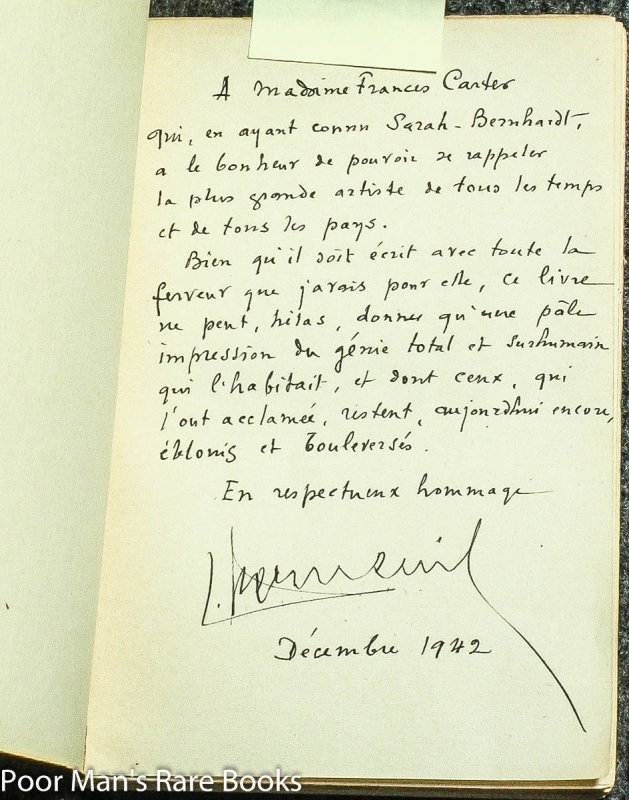 A Madame Frances Carter
qui, en ayant connu Sarah-Bernhardt,
a le bonheur de pouvoir se rappeler
la plus grande artiste de tous les temps
et de tous les pays.
Bien qu'il soit écrit avec toute la
ferveur que j'avais pour elle, ce livre
ne peut, hélas, donner qu'une pâle
impression du génie total et surhumain
qui l'habitait, et dont ceux, qui
l'ont acclamée, restent, aujourd'hui encore,
éblouis et bouleversés.
En respectueux hommage
Décembre 1942
Poor Man's Rare Books